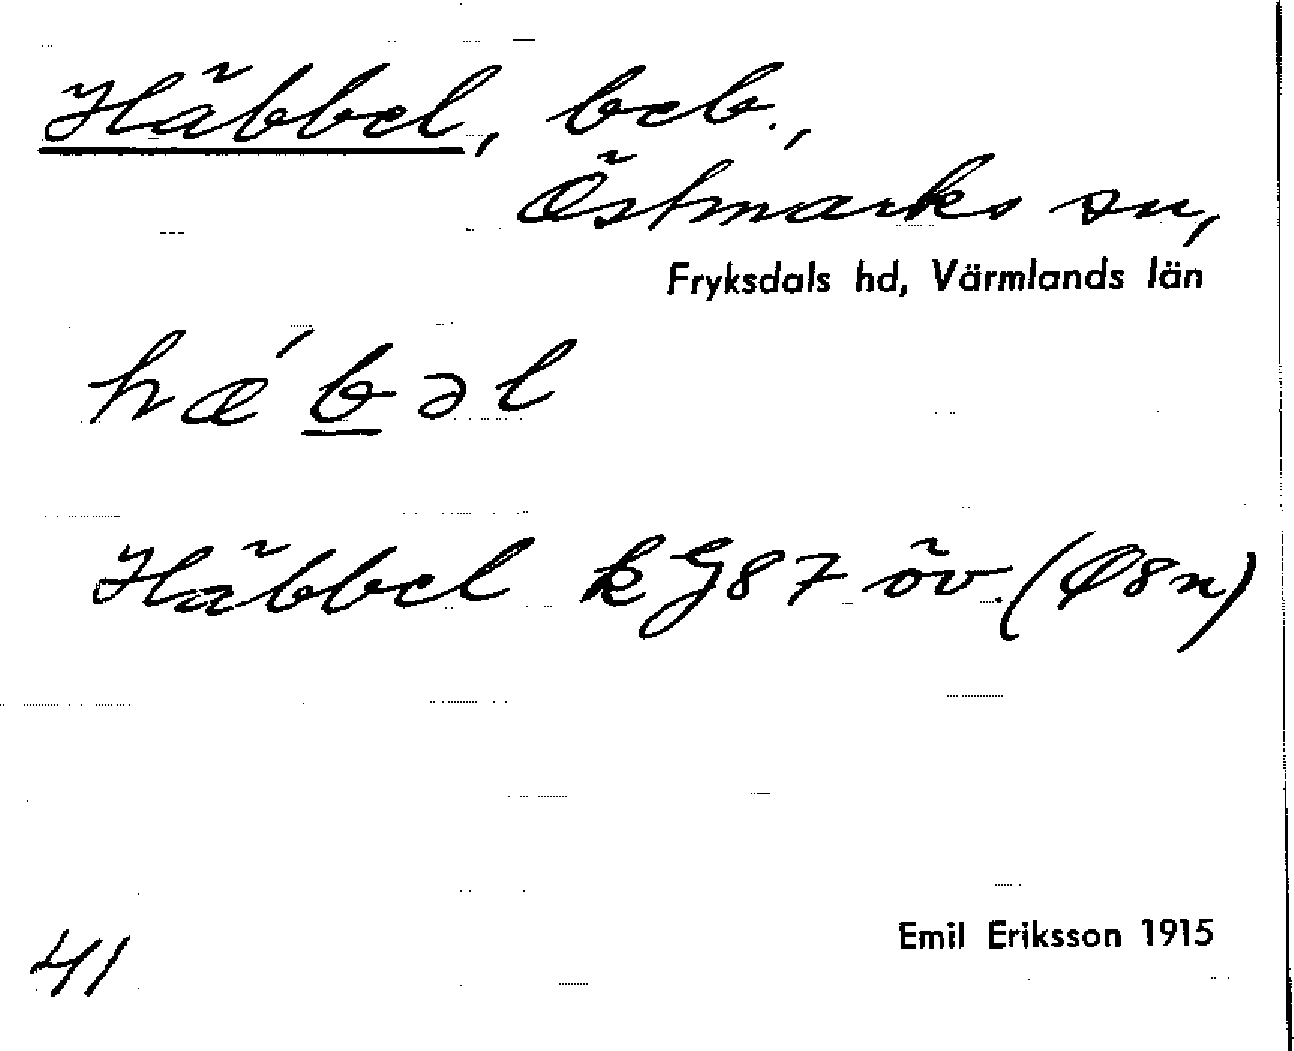 Häbbel, beb.,
Östmarks sn,
Fryksdals hd, Värmlands län
hæ´bəl
Häbbel kJ87 öv. (Ø8n)
41
Emil Eriksson 1915